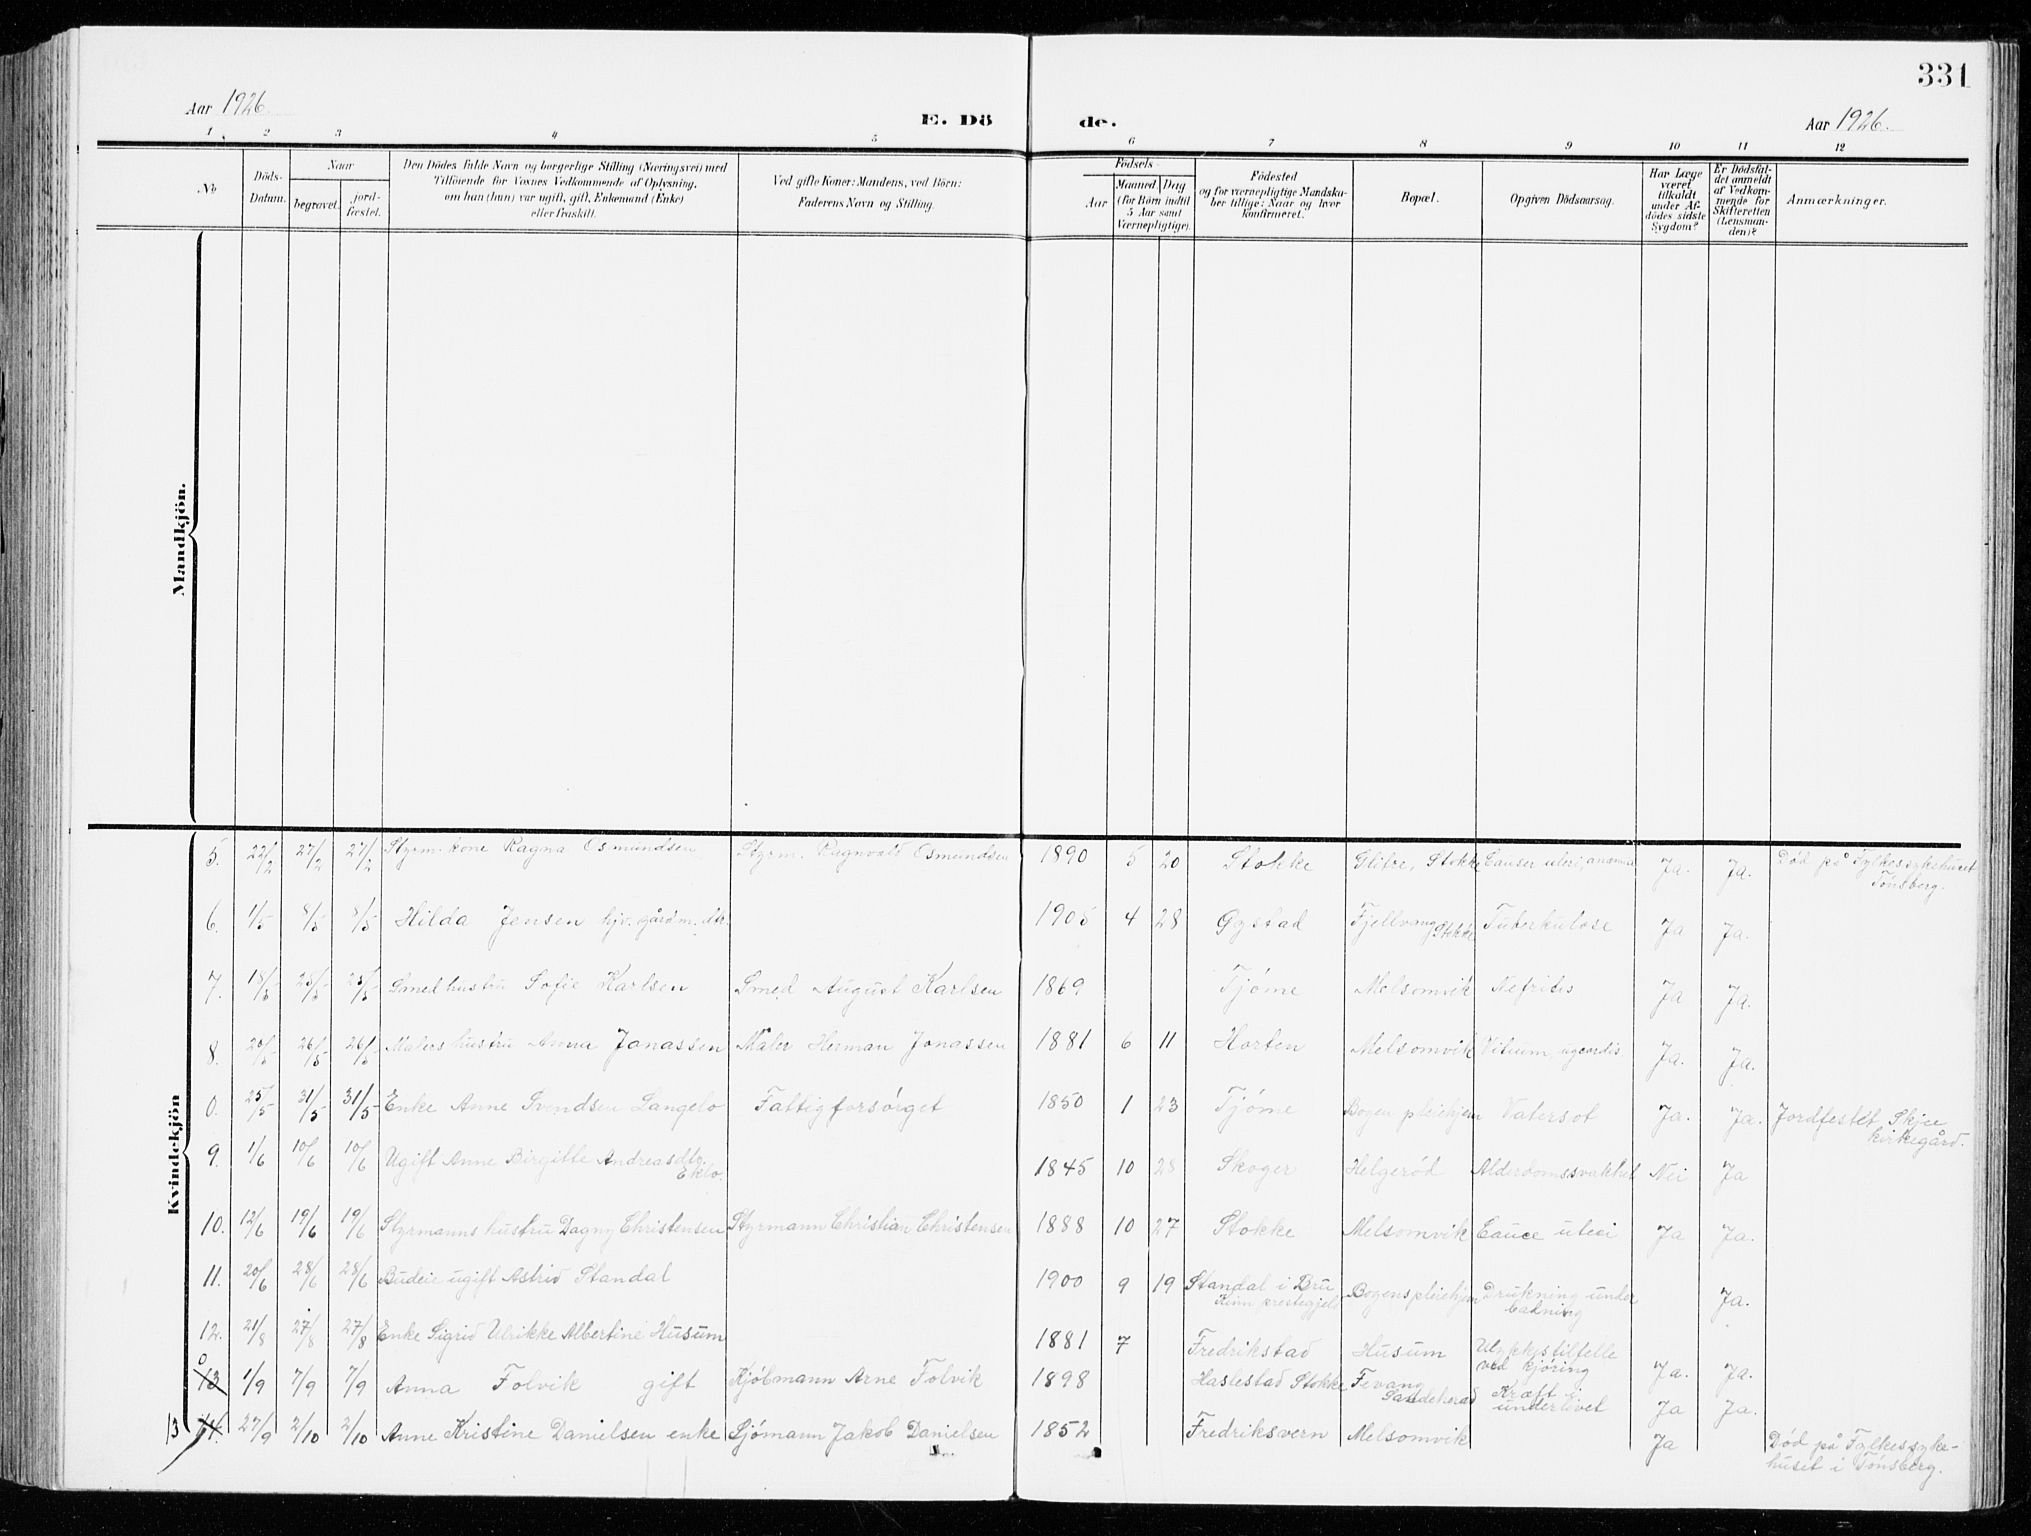 331
Aar 1926. E. Dö de. Aar 1926.
1 2 3 4 5 6 7 8 9 10 11 12
No
Döds-Datum.
Naar
begravet.
jord-fæstet.
Den Dödes fulde Navn og borgerlige Stilling (Næringsvei) med
Tilföiende for Voxnes Vedkommende af Oplysning,
om han (hun) var ugift, gift, Enkemand (Enke)
eller fraskilt.
Ved gifte Koner: Mandens, ved Börn:
Faderens Navn og Stilling.
Födsels-
Aar
Maaned Dag
(for Börn indtil
5 Aar samt
Værnepligtige).
Födested
og for værnepligtige Mandska-
ber tillige: Naar og hvor
konfirmeret.
Bopæl.
Opgiven Dödsaarsag.
Har Læge
været
tilkaldt
under Af-
dödes sidste
Sygdom?
Er Dödsfal-
det anmeldt
af Vedkom-
mende for
Skifteretten
(Lensman-
den)?
Anmærkninger.
Mandkjön.
Kvindekjön
5. 22/2 27/2 27/2 Styrm. kone Ragna Osmundsen Styrm. Ragnvald Osmundsen 1890 5 20 Stokke Glitre, Stokke Cancer uteri, anæmia Ja. Ja. Död på Fylkessykehuset
Tönsberg.
6. 1/5 8/5 8/5 Hilda Jensen hjv. gårdm. dtr. 1905 4 28 Gystad Fjellvang Stokke Tuberkulose Ja Ja.
7. 18/5 25/5 25/5 Smedhustru Sofie Karlsen Smed August Karlsen 1869 Tjøme Melsomvik Nefritis Ja Ja.
8. 20/5 26/5 26/5 Malers hustru Anna Jonassen Maler Herman Jonassen 1881 6 11 Horten Melsomvik Vitium cordis Ja. Ja.
0. 25/5 31/5 31/5 Enke Anne Svendsen Langelo Fattigforsörget 1850 1 23 Tjøme Bogen pleiehjem Vatersot Ja. Ja. Jordfestet Skjee
kirkegård.
9. 1/6 10/6 10/6 Ugift Anne Birgitte Andreasdtr.
Eklo. 1845 10 28 Skoger Helgerød Alderdomssvakhet Nei Ja
10. 12/6 19/6 19/6 Styrmanns hustru Dagny Christensen Styrmann Christian Christensen 1888 10 27 Stokke Melsomvik Cance uteri Ja Ja.
11. 20/6 28/6 28/6 Budeie ugift Astrid Standal 1900 9 19 Standal i Bru
Kinn prestegjeld Bogens pleiehjem Drukning under
badning Ja.
12. 21/8 27/8 27/8 Enke Sigrid Ulrikke Albertine Husum 1881 7 Fredrikstad Husum Ulykkestilfelle
ved kjøring Ja. Ja.
0 13 1/9 7/9 7/9 Anna Folvik gift Kjøbmann Arne Folvik 1898 Haslestad Stokke Fevang
Sandeherad Kræft i
underlivet Ja Ja.
13 14. 27/9 2/10 2/10 Anne Kristine Danielsen enke Sjømann Jakob Danielsen 1852 Fredriksvern Melsomvik Ja Död på Fylkessyke-
huset i Tönsberg.